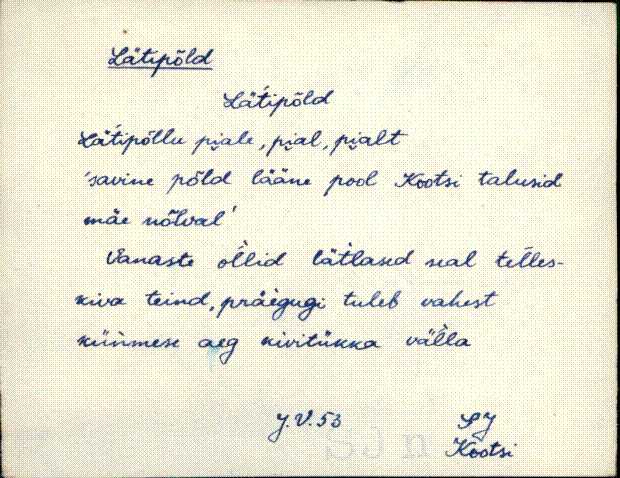 Lätipõld
Läťipõld
Läťipõllu pi̯ale, pi̯al, pi̯alt
'savine põld lääne pool Kootsi talusid
mäe nõlval'
Vanaste oĺlid läťlased seal telles-
kiva teind, praegugi tuleb vahest
küńmese aeg kivitükka väĺla
J.V.53
Kootsi